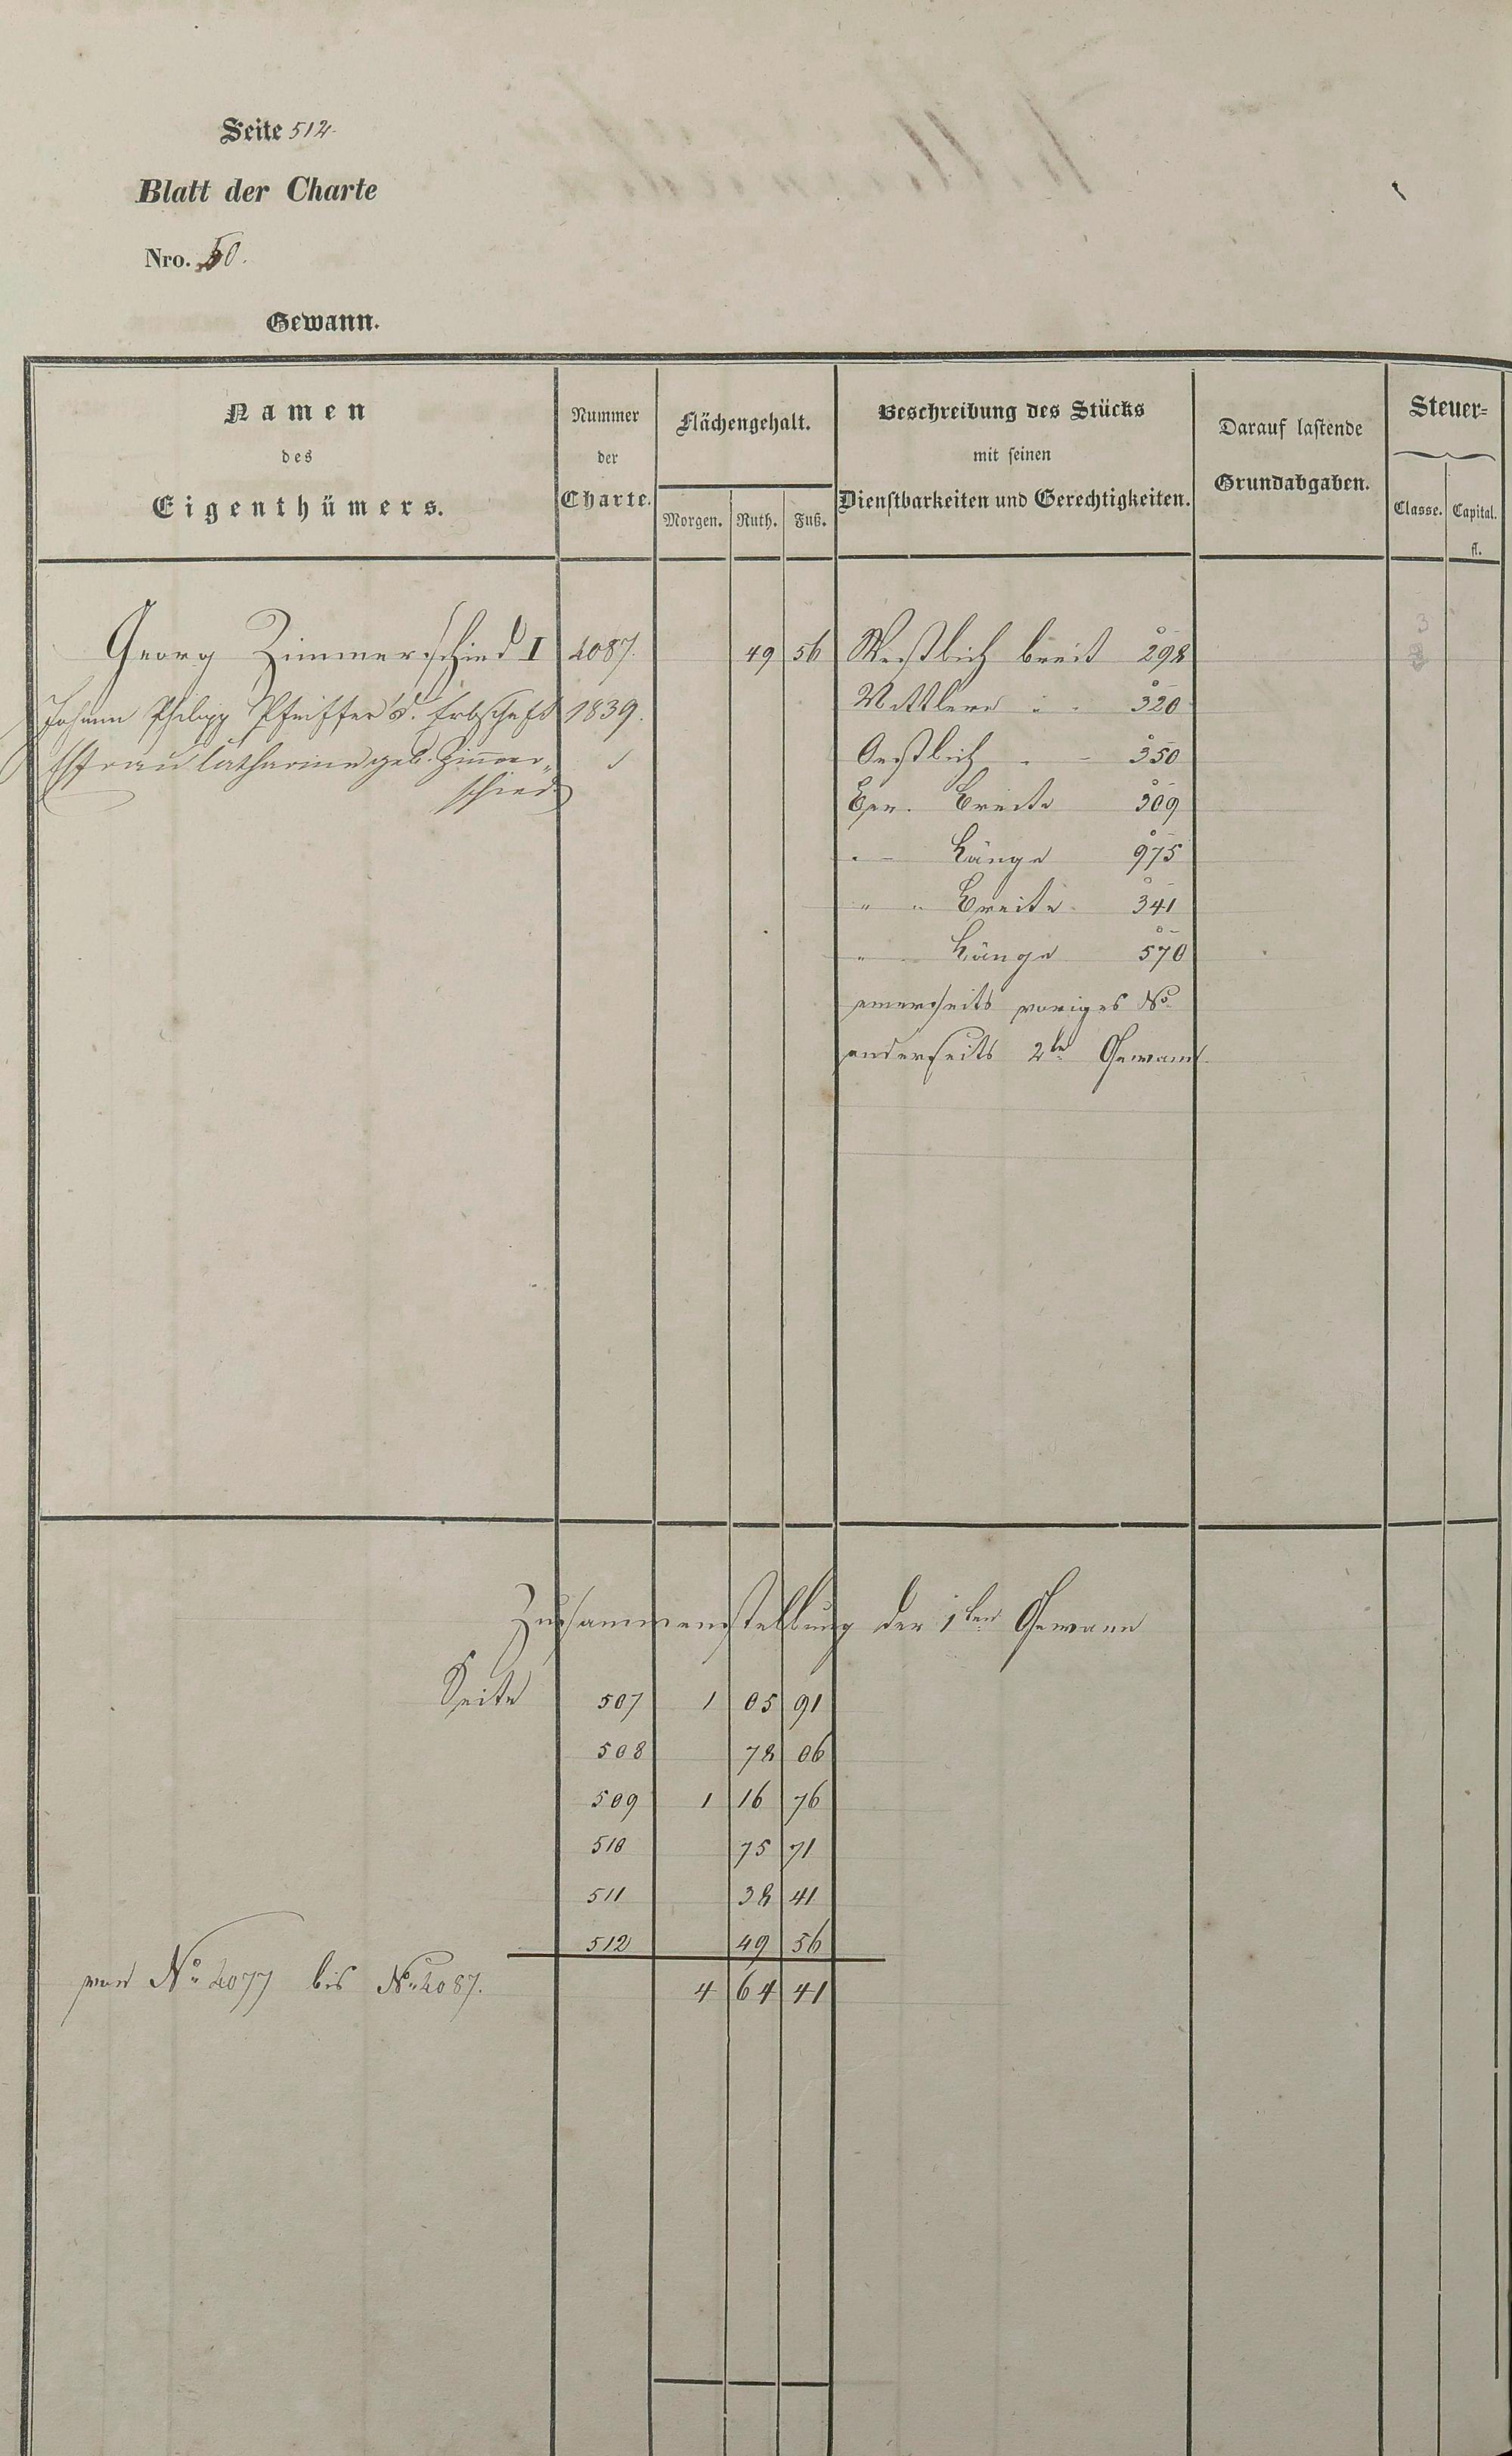 Seite 512
Blatt der Charte
Nro. 50.
Gewann.
Namen des Eigenthümers.
Nummer der Charte.
Flächengehalt.
Morgen. Ruth. Fuß.
Beschreibung des Stücks mit seinen Dienstbarkeiten und Gerechtigkeiten.
Darauf lastende Grundabgaben.
Steuer=
Classe. Capital. fl.
Georg Zimmerschied I 4087. 49 56 Westlich breit 298
Johann Philipp Pfeiffer d. Erbschaft 1839. Mittlere " " 320
Ehfrau Catharine geb. Zimmer- Oestlich " " 350
schied Ger. Breite 309
" Länge 975
" " Breite 341
" Länge 570
einerseits voriges No
anderseits 2te Gewann
Zusammenstellung der 1ten Gewann
Seite 507 1 05 91
508 78 06
509 1 16 76
510 75 71
511 38 41
512 49 56
von No 4077 bis No 4087. 4 64 41